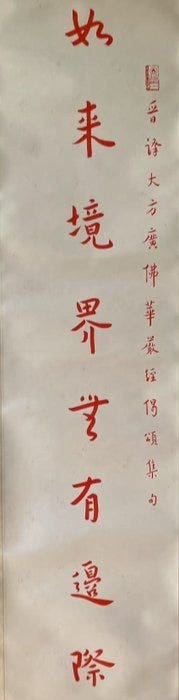 晉譯大方廣佛華嚴經偈頌集句
如来境界无有邊際